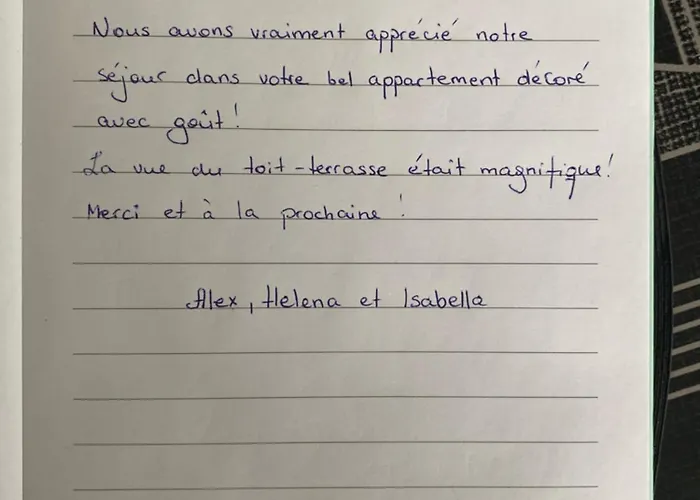 Nous avons vraiment apprécié notre
séjour dans votre bel appartement décoré
avec goût!
La vue du toit-terrasse était magnifique!
Merci et à la prochaine!
Alex, Helena et Isabella